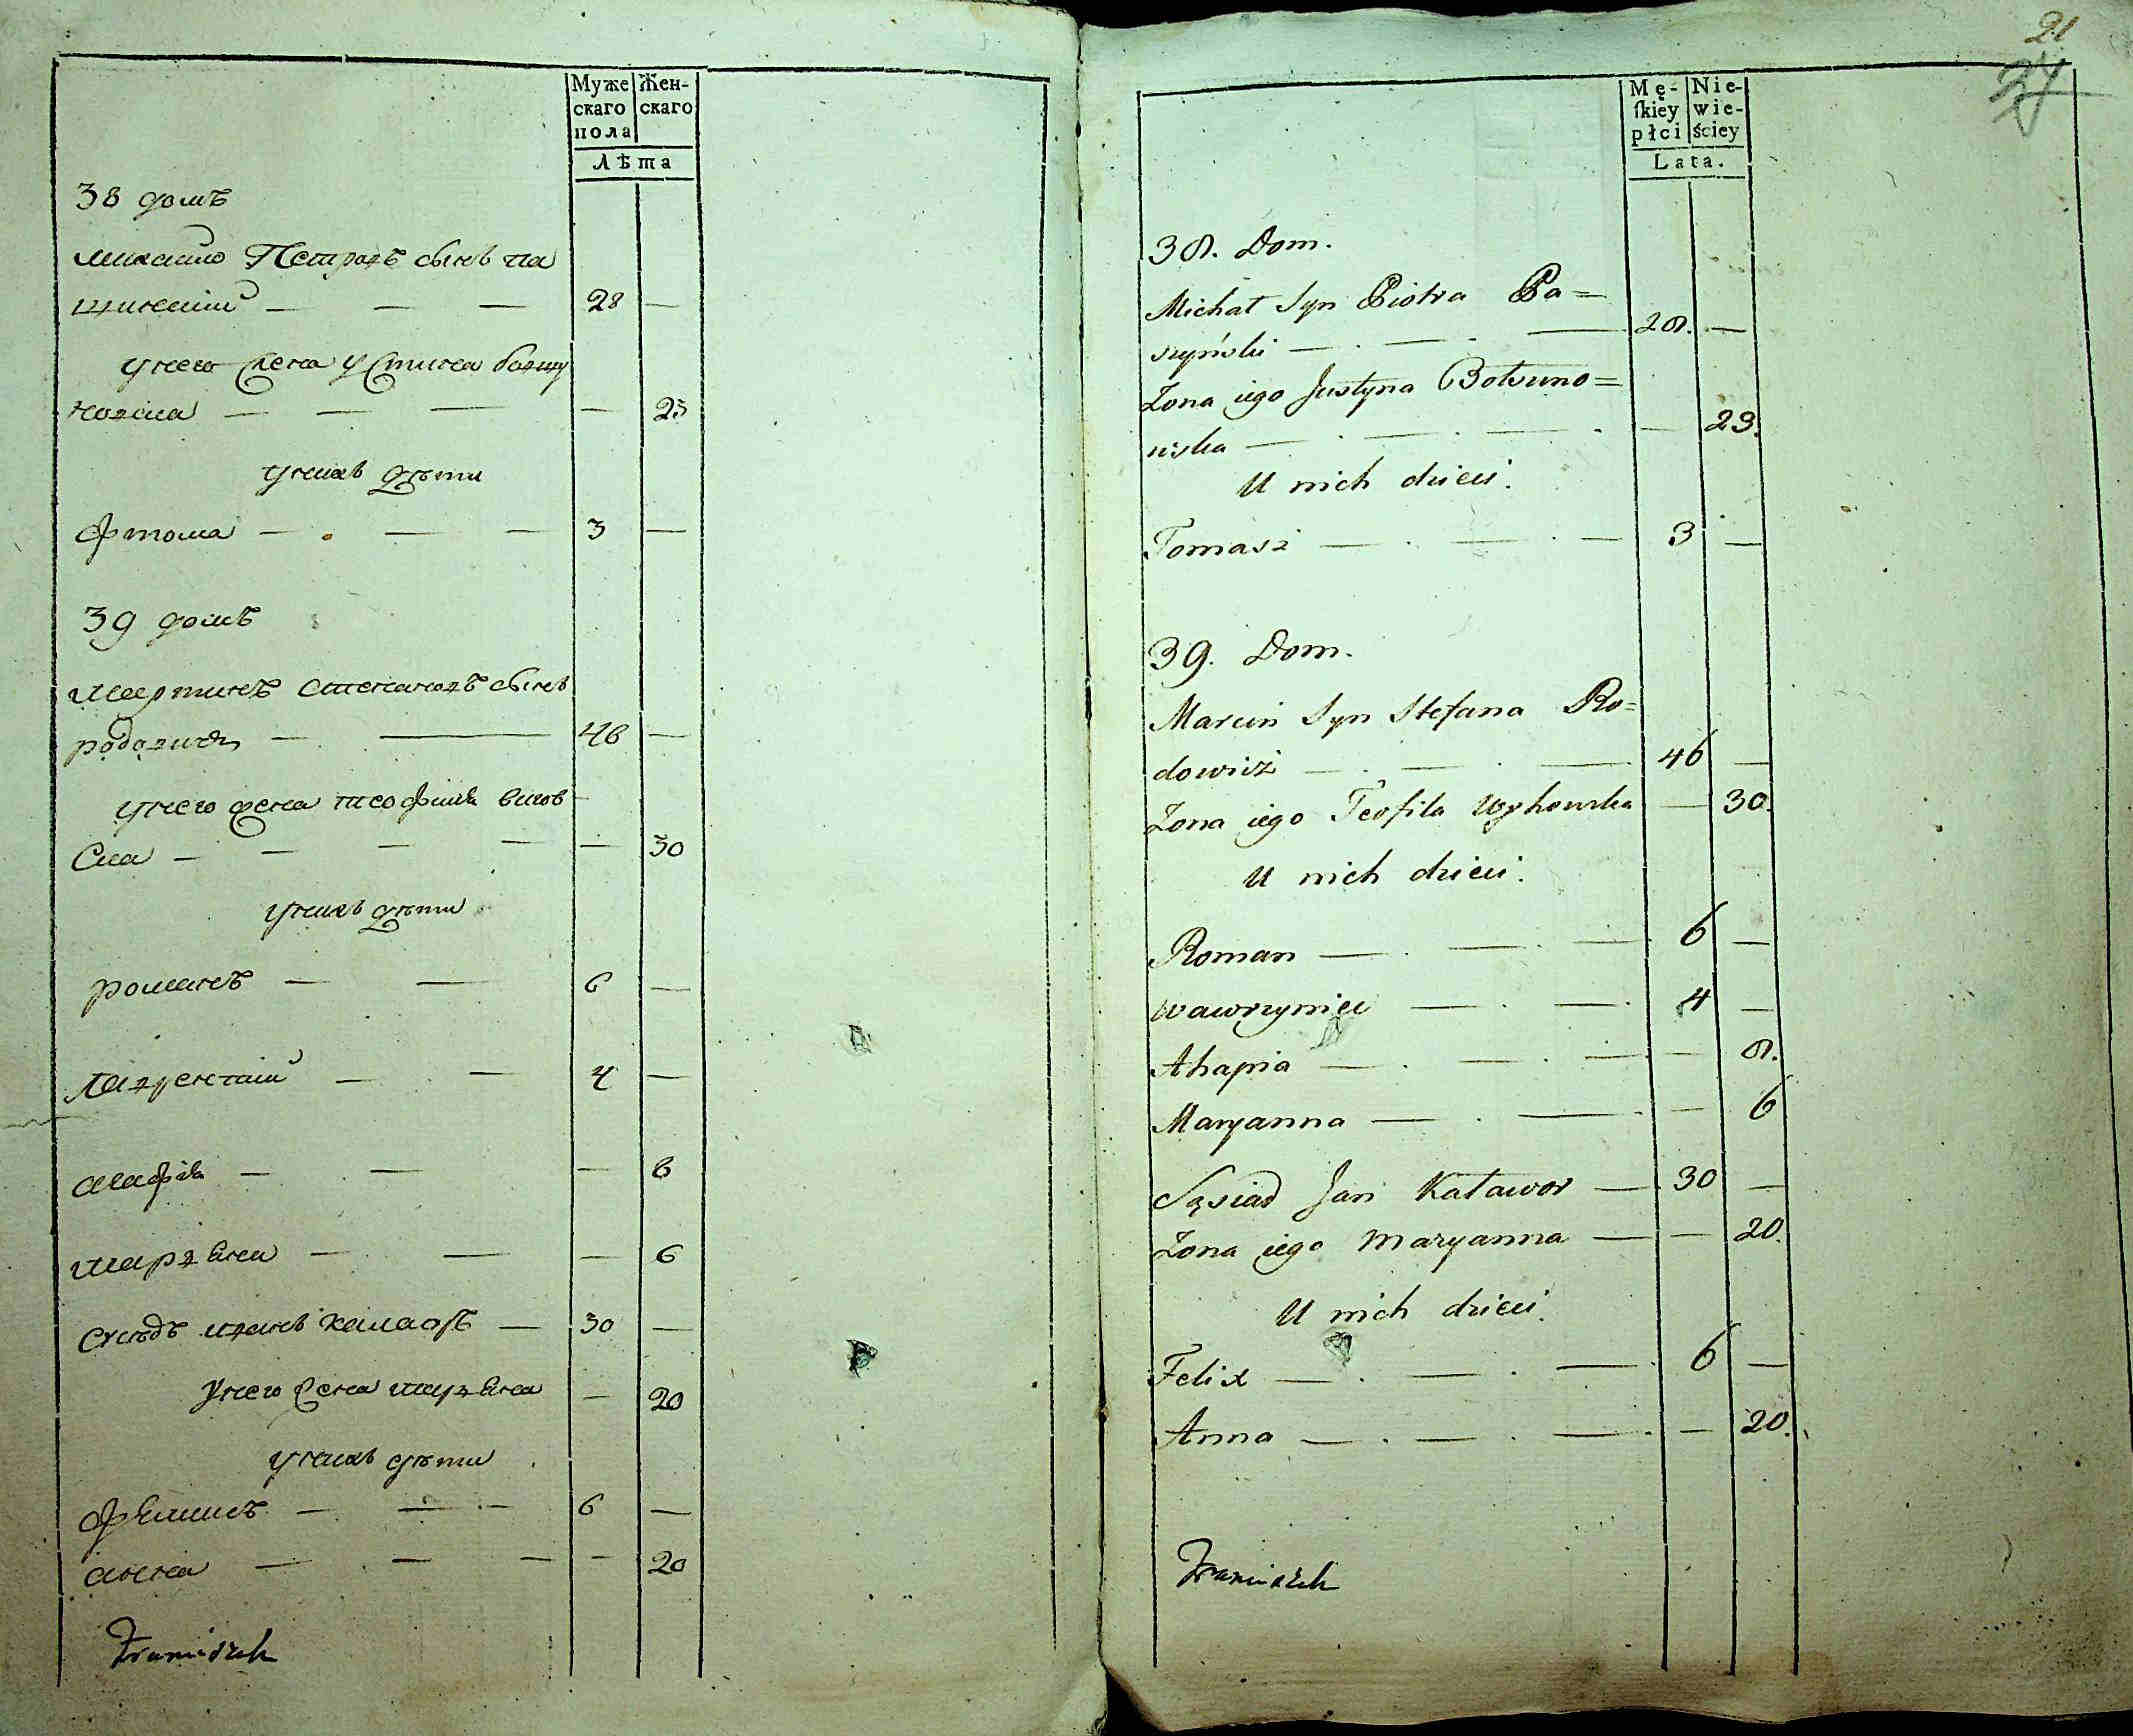 Муже
скаго
пола
Жен-
скаго
Лѣта
38 домъ
михаило Петровъ сынъ па
щинский — — — 28 —
унего жена устина болту
новска — — — — 23
унихъ дѣти
фтома — — — 3 —
39 домъ
мартинъ степановъ сынъ
родович — — 46 —
унего жена теофиля вигов
ска — — — — — 30
унихъ дѣти
романъ — — 6 —
Лаврентий — — 4 —
агафія — — — 8
марЪяна — — — 6
сусѣдъ иванъ — 30 —
унего жена марЪяна — 20
унихъ дѣти
феликсъ — — — 6 —
анна — — — — 20
Franciszek
21
27
Mę-
skiey
płci
Nie-
wie-
ściey
Lata.
38. Dom.
Michał Syn Piotra Pa=
szyński — . — . — 28. —
Zona iego Justyna Botuno=
wska — . — . — . — 23.
U nich dzieci.
Tomasz — . — . — 3 —
39. Dom.
Marcin Syn Stefana Ro=
dowicz — . — . — 46 —
Zona iego Teofila Wyhowska — 30.
U nich dzieci.
Roman — . — . — 6 —
Wawrzyniec — . — . 4 —
Ahapia — . — . — — 8.
Maryanna — . — . — 6
Sąsiad Jan Kaławor — 30 —
Zona iego Maryanna — — 20.
U nich dzieci.
Felix — . — . — . 6 —
Anna — . — . — . — 20.
Franciszek